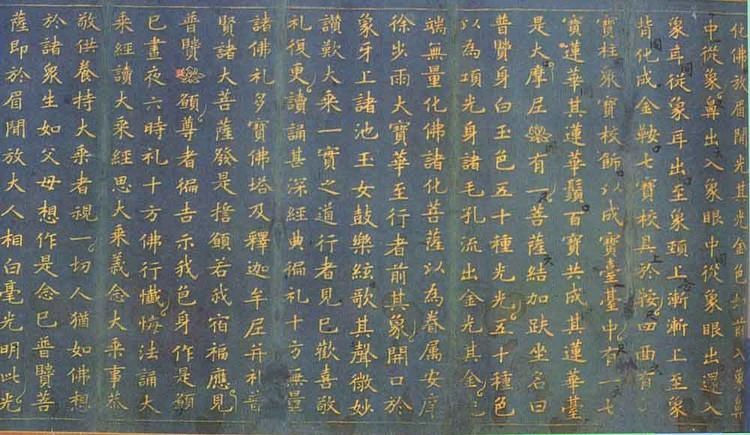 化佛放眉間光其光金色當前入象鼻
中從象鼻出入象眼中從象眼出還入
象耳從象耳出至象頸上漸漸上至象
背化成金鞍七寶校具於鞍四面有
寶柱眾寶校飾以成寶臺臺中有一七
寶蓮華其蓮華鬚百寶共成其蓮華臺
是大摩尼有一菩薩結加趺坐名曰
普賢身白玉色五十種光光五十種色
以為項光身諸毛孔流出金光其金光
端無量化佛諸化菩薩以為眷属安庠
徐步雨大寶華至行者前其象開口於
象牙上諸池玉女鼓樂絃歌其聲微妙
讚歎大乘一實之道行者見已歡喜敬
礼復更讀誦甚深經典徧礼十方無量
諸佛礼多寶佛塔及釋迦牟尼并礼普
賢諸大菩薩發是誓願若我宿福應見
普賢願尊者徧吉示我色身作是願
已晝夜六時礼十方佛行懺悔法誦大
乘經讀大乘經思大乘義念大乘事恭
敬供養持大乘者視一切人猶如佛想
於諸眾生如父母想作是念已普賢菩
薩即於眉間放大人相白毫光明此光